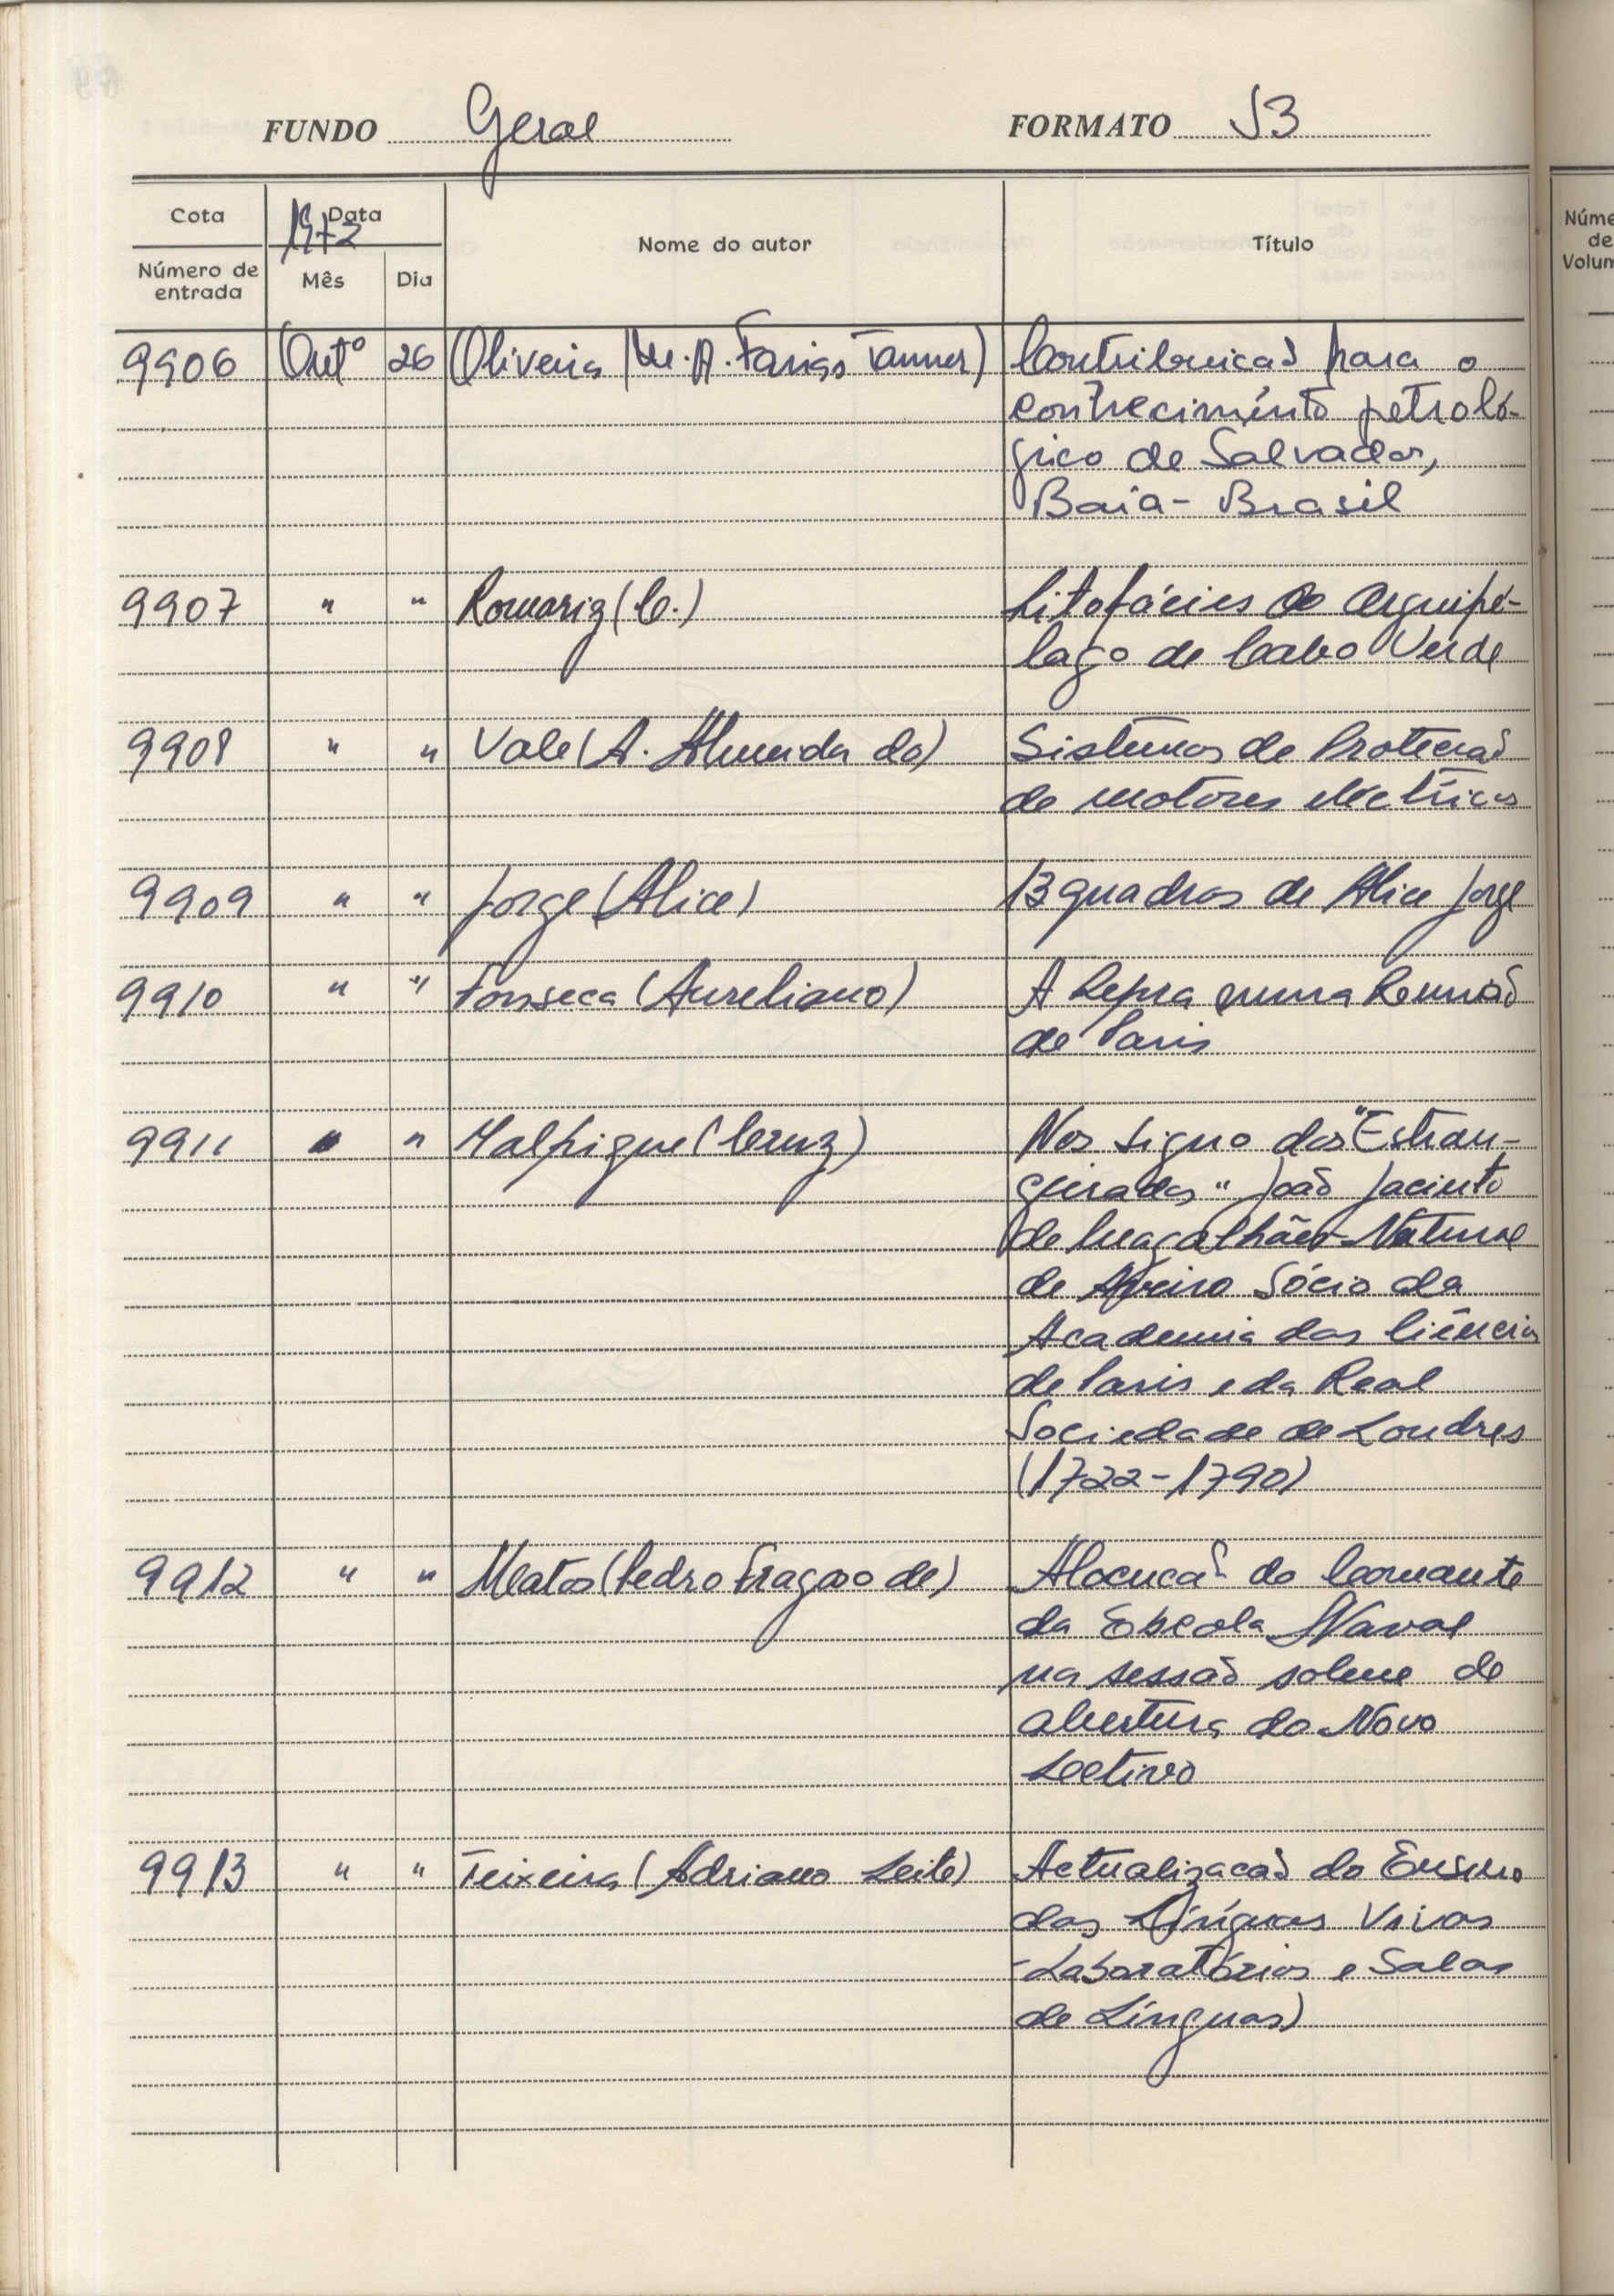 FUNDO Geral FORMATO J3
Cota Data 1972 Nome do autor Título
Número de entrada Mês Dia
Núme
de
Volum
9906 Outº 26 Oliveira (M. A. Farias Tanner) Contribuicaõ para o
conhecimento petroló-
gico de Salvador,
Baía - Brasil
9907 " " Romariz (C.) Litofácies do arquipé-
lago de Cabo Verde
9908 " " Vale (A. Almeida do) Sistemas de Protecaõ
de motores eléctricos
9909 " " Jorge (Alice) 13 quadros de Alice Jorge
9910 " " Fonseca (Aureliano) A Lepra numa Reuniaõ
de Paris
9911 " " Malpique (Cruz) Nos signo dos "Estran-
geirados" Joaõ Jacinto
de Magalhães - Natural
de Aveiro Sócio da
Academia das Ciências
de Paris e da Real
Sociedade de Londres
(1722-1790)
9912 " " Matos (Pedro Fragoso de) Alocucaõ do Comante
da Escola Naval
na sessaõ solene de
abertura do Novo
Lectivo
9913 " " Teixeira (Adriano Leite) Actualizacaõ do Ensino
das Línguas Vivas
(Laboratórios e Salas
de Línguas)